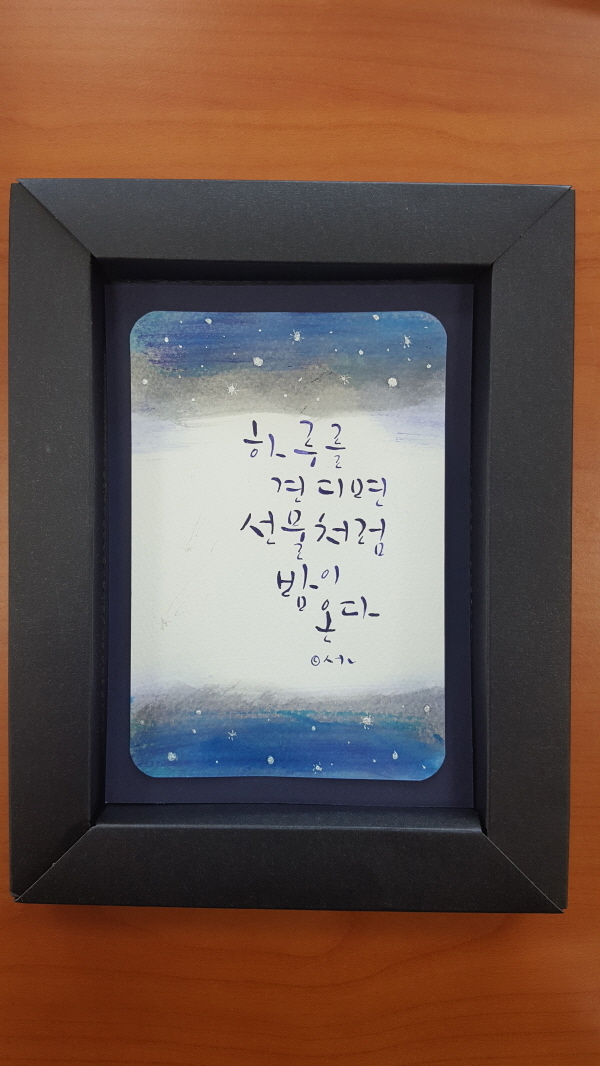 하루를
견디면
선물처럼
밤이
온다